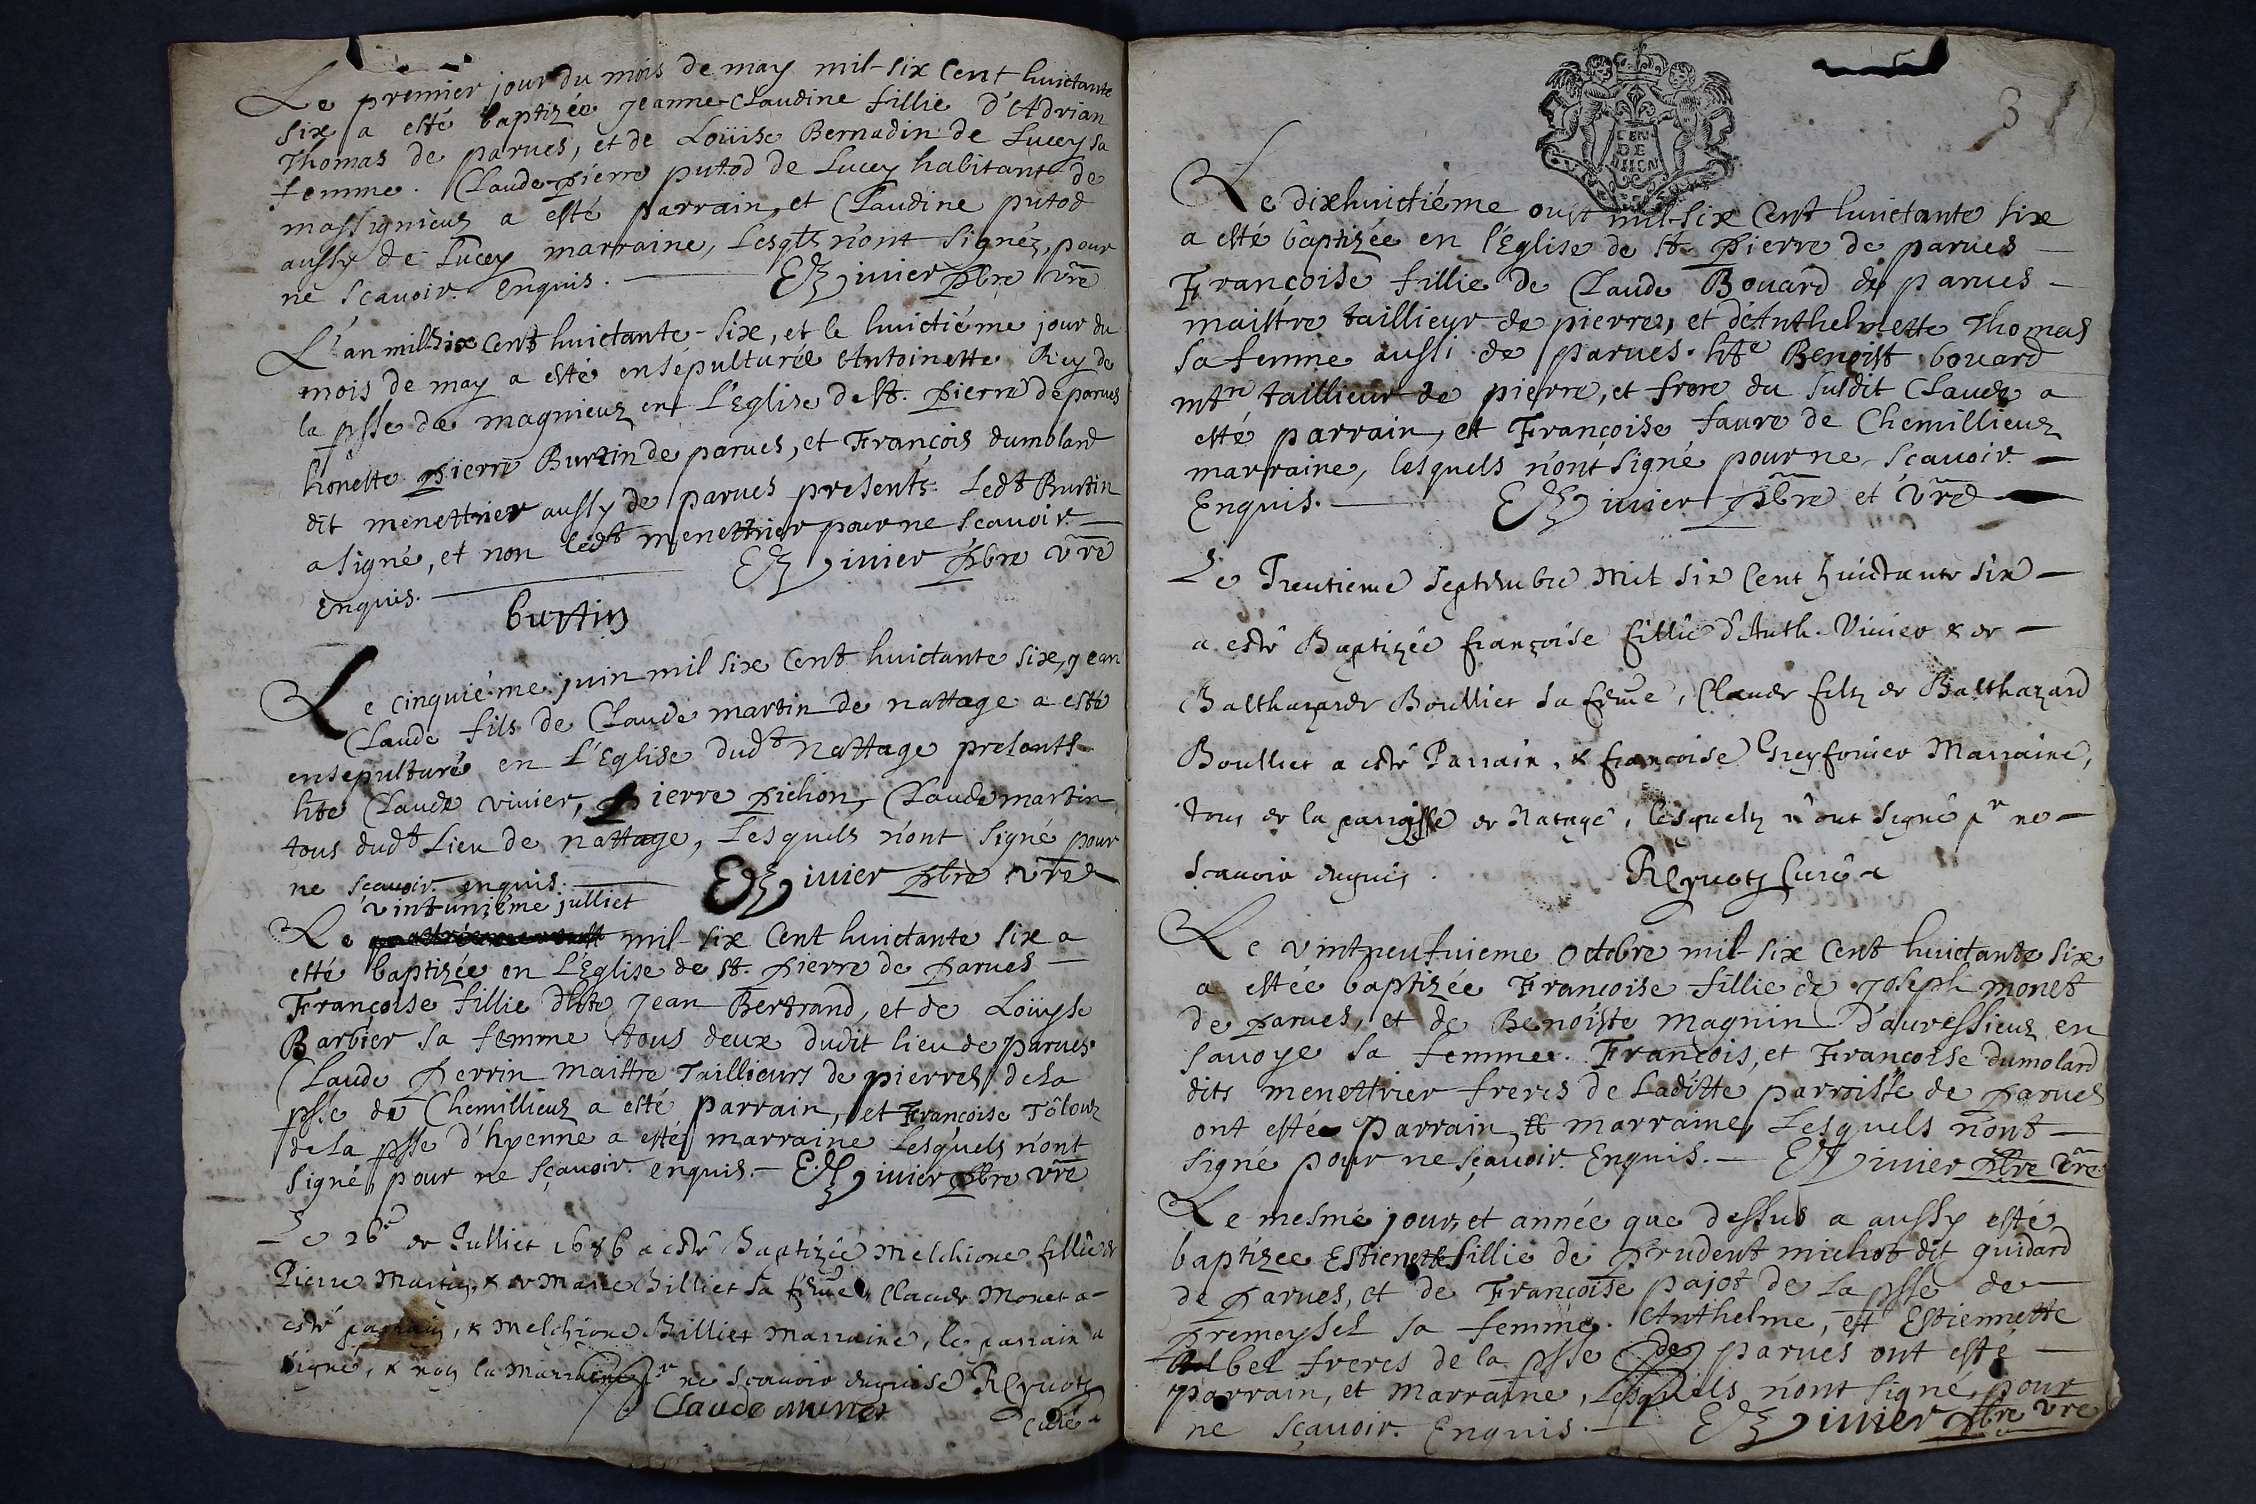 Le premier jour du mois de may mil-six Cent huictante
six a esté baptizée Jeanne-Claudine fillie d'Adrian
Thomas de parues, et de Loüise Bernadin de Lucey sa
femme. Claude-pierre putod de Lucey habitant de
massignieuz a esté parrain, et Claudine putod
aussy de Lucey marraine, Lesqls n'ont signéz, pour
ne sçauoir. Enquis. viuier pbre vre
L'an mil six Cent huictante-six, et le huictiéme jour du
mois de may a esté ensépulturée Antoinette Rey de
la psse de magnieuz en L'Eglise de St. pierre de parues
honette pierre Burtin de parues, et François dumolard
dit menettrier aussy de parues presents. Ledt Burtin
a signé, et non ledt menettrier pour ne sçauoir.
Enquis. viuier pbre vre
burtin
Le cinquiéme juin mil six Cent huictante six, jean
Claude fils de Claude martin de nattage a esté
ensepulturé en L'Eglise dudt Nattage presents
hte Claude viuier, pierre pichon, Claude martin
tous dudt Lieu de nattage, Lesquels n'ont signé pour
ne sçauoir. enquis. viuier pbre vre
vintuniéme julliet
Le mil-six Cent huictante six a
esté baptizée en L'Eglise de St. pierre de parues
Françoise fillie d'hte Jean Bertrand, et de Loüyse
Barbier sa femme tous deux dudit lieu de parues.
Claude perrin maittre Taillieurs de pierres de la
psse de Chemillieuz a esté parrain, et Françoise
de la psse d'hyenne a esté marraine Lesquels n'ont
signé pour ne sçauoir. enquis.- viuier pbre vre
Le 26e de Julliet 1686 a esté Baptizée Melchione fillie de
Pierre Martin, & de Marie Billiet sa feme. Claude Monet a
esté parrain, & Melchione Billiet Marraine, le parrain a
signé, & non la Marraine pr ne sçauoir enquise
Claude munet
Curé
3
CEN
DE
Le dixhuictiéme oust mil-six Cent huictante six
a esté baptizée en l'Eglise de St. pierre de parues
Françoise fillie de Claude Bouard de parues
maittre taillieur de pierres, et d'Anthelmette Thomas
sa femme aussi de parues. hte Benoist bouard
mtre taillieur de pierre, et frere du susdit Claude a
esté parrain, et Françoise faure de Chemillieuz
marraine, lesquels n'ont signé pour ne sçauoir.
Enquis. viuier pbre et vre
Le Trentieme Septembre Mil six Cent huictante six
a esté Baptizée françoise fillie d'Anth. Viuier & de
Balthazarde Boulliet sa feme, Claude filz de Balthazard
Boulliet a esté Parrain, & françoise Marraine,
tous de la paroisse de Natage, lesquelz n'ont signé pr ne
sçauoir enquis. Curé
Le vintneufuieme octobre mil-six Cent huictante six
a estée baptizée Françoise fillie de Joseph monet
de parues, et de Benoiste magnin d'auressieuz en
sauoye sa femme. François, et Françoise dumolard
dits menettrier freres de Laditte parroisse de parues
ont esté parrain, et marraine, Lesquels n'ont
signé pour ne sçauoir. Enquis.- viuier pbre vre
Le mesme jour, et année que dessus a aussy esté
baptizee Estienette fillie de prudent michot dit guidard
de parues, et de Françoise pajot de La psse de
premeysel sa femme. Anthelme, et Estiennette
Albel freres de la psse de parues ont esté
parrain, et marraine, Lesquels n'ont signé, pour
ne sçauoir. Enquis.- viuier pbre vre